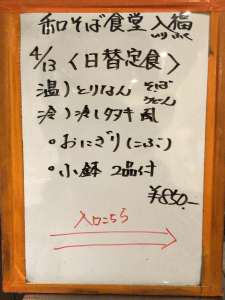 和そば食堂 入鰯
4/13 〈日替定食〉
温）とりなん そば
うどん
冷）冷しタヌキ風
・おにぎり（こぶ）
・小鉢 2品付
¥850.-
入口こちら